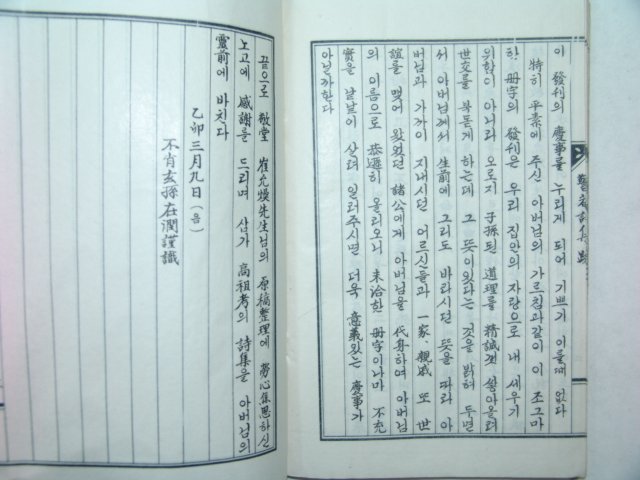 이 發刊의 慶事를 누리게 되어 기쁘기 이를데 없다
特히 平素에 주신 아버님의 가르침과같이 이 조그마
한 册字의 發刊은 우리 집안의 자랑으로 내 세우기
위함이 아니라 오로지 子孫된 道理를 精誠껏 쌓아올려
世交를 북돋게 하는데 그 뜻이있다는 것을 밝혀 두면
서 아버님께서 生前에 그리도 바라시던 뜻을 따라 아
버님과 가까이 지내시던 어르신들과 一家、親戚 또 世
誼를 맺어 왔었던 諸公에게 아버님을 代身하여 아버님
의 이름으로 恭遜히 올리오니 未洽한 册字이나마 不充
實을 낱낱이 살펴 일러주시면 더욱 意義있는 慶事가
아닐까한다
끝으로 敬堂 崔允煖先生님의 原稿整理에 勞心焦思하신
노고에 感謝를 드리며 삼가 高祖考의 詩集을 아버님의
靈前에 바치다
乙卯三月九日(음)
不肖玄孫在潤謹識